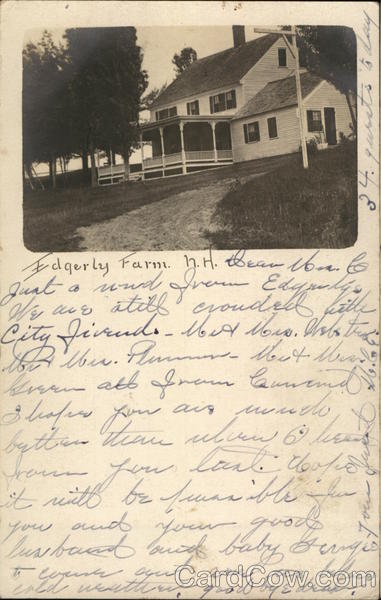 Edgerly Farm. N.H. Dear Mrs. C
Just a word from Edgerly.
We are still crowded with
City friends - Mr & Mrs. Webster
Mr & Mrs. Plummer - Mr & Mrs.
Green all from Concord
I hope you are much
better than when I heard
from you last. Hope
it will be possible for
you and your good
husband and baby
to come
cold weather. good bye dear
34 guests to day
Your
CardCow.com